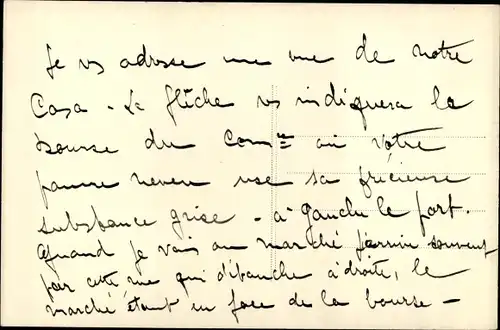 Je vs adresse une vue de notre
Casa - La flèche vs indiquera la
bourse du Com^ce où votre
pauvre neveu use sa précieuse
substance grise - à gauche le port.
Quand je vais au marché j'arrive souvent
par cette rue qui débouche à droite, le
marché étant en face de la bourse -